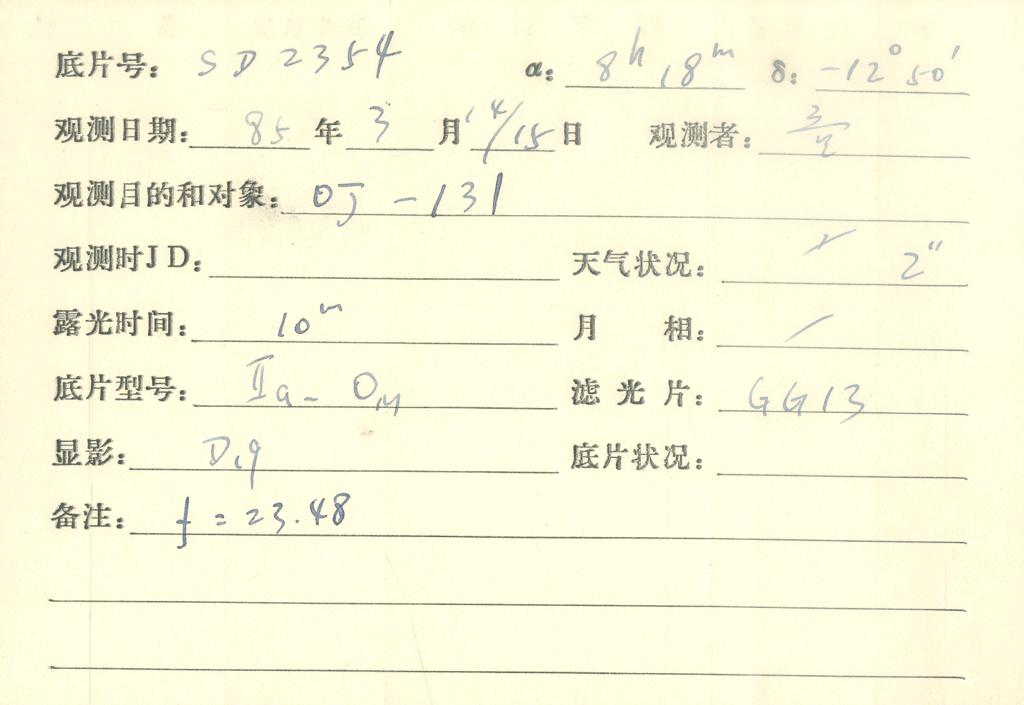 底片号: SD2354 α: 8h 18m δ: -12° 50′
观测日期: 85 年 3 月 14/15 日 观测者:
观测目的和对象: OJ-131
观测时JD: 天气状况: 2″
露光时间: 10m 月 相: /
底片型号: IIa-O,H 滤 光 片: GG13
显影: D19 底片状况:
备注: f=23.48